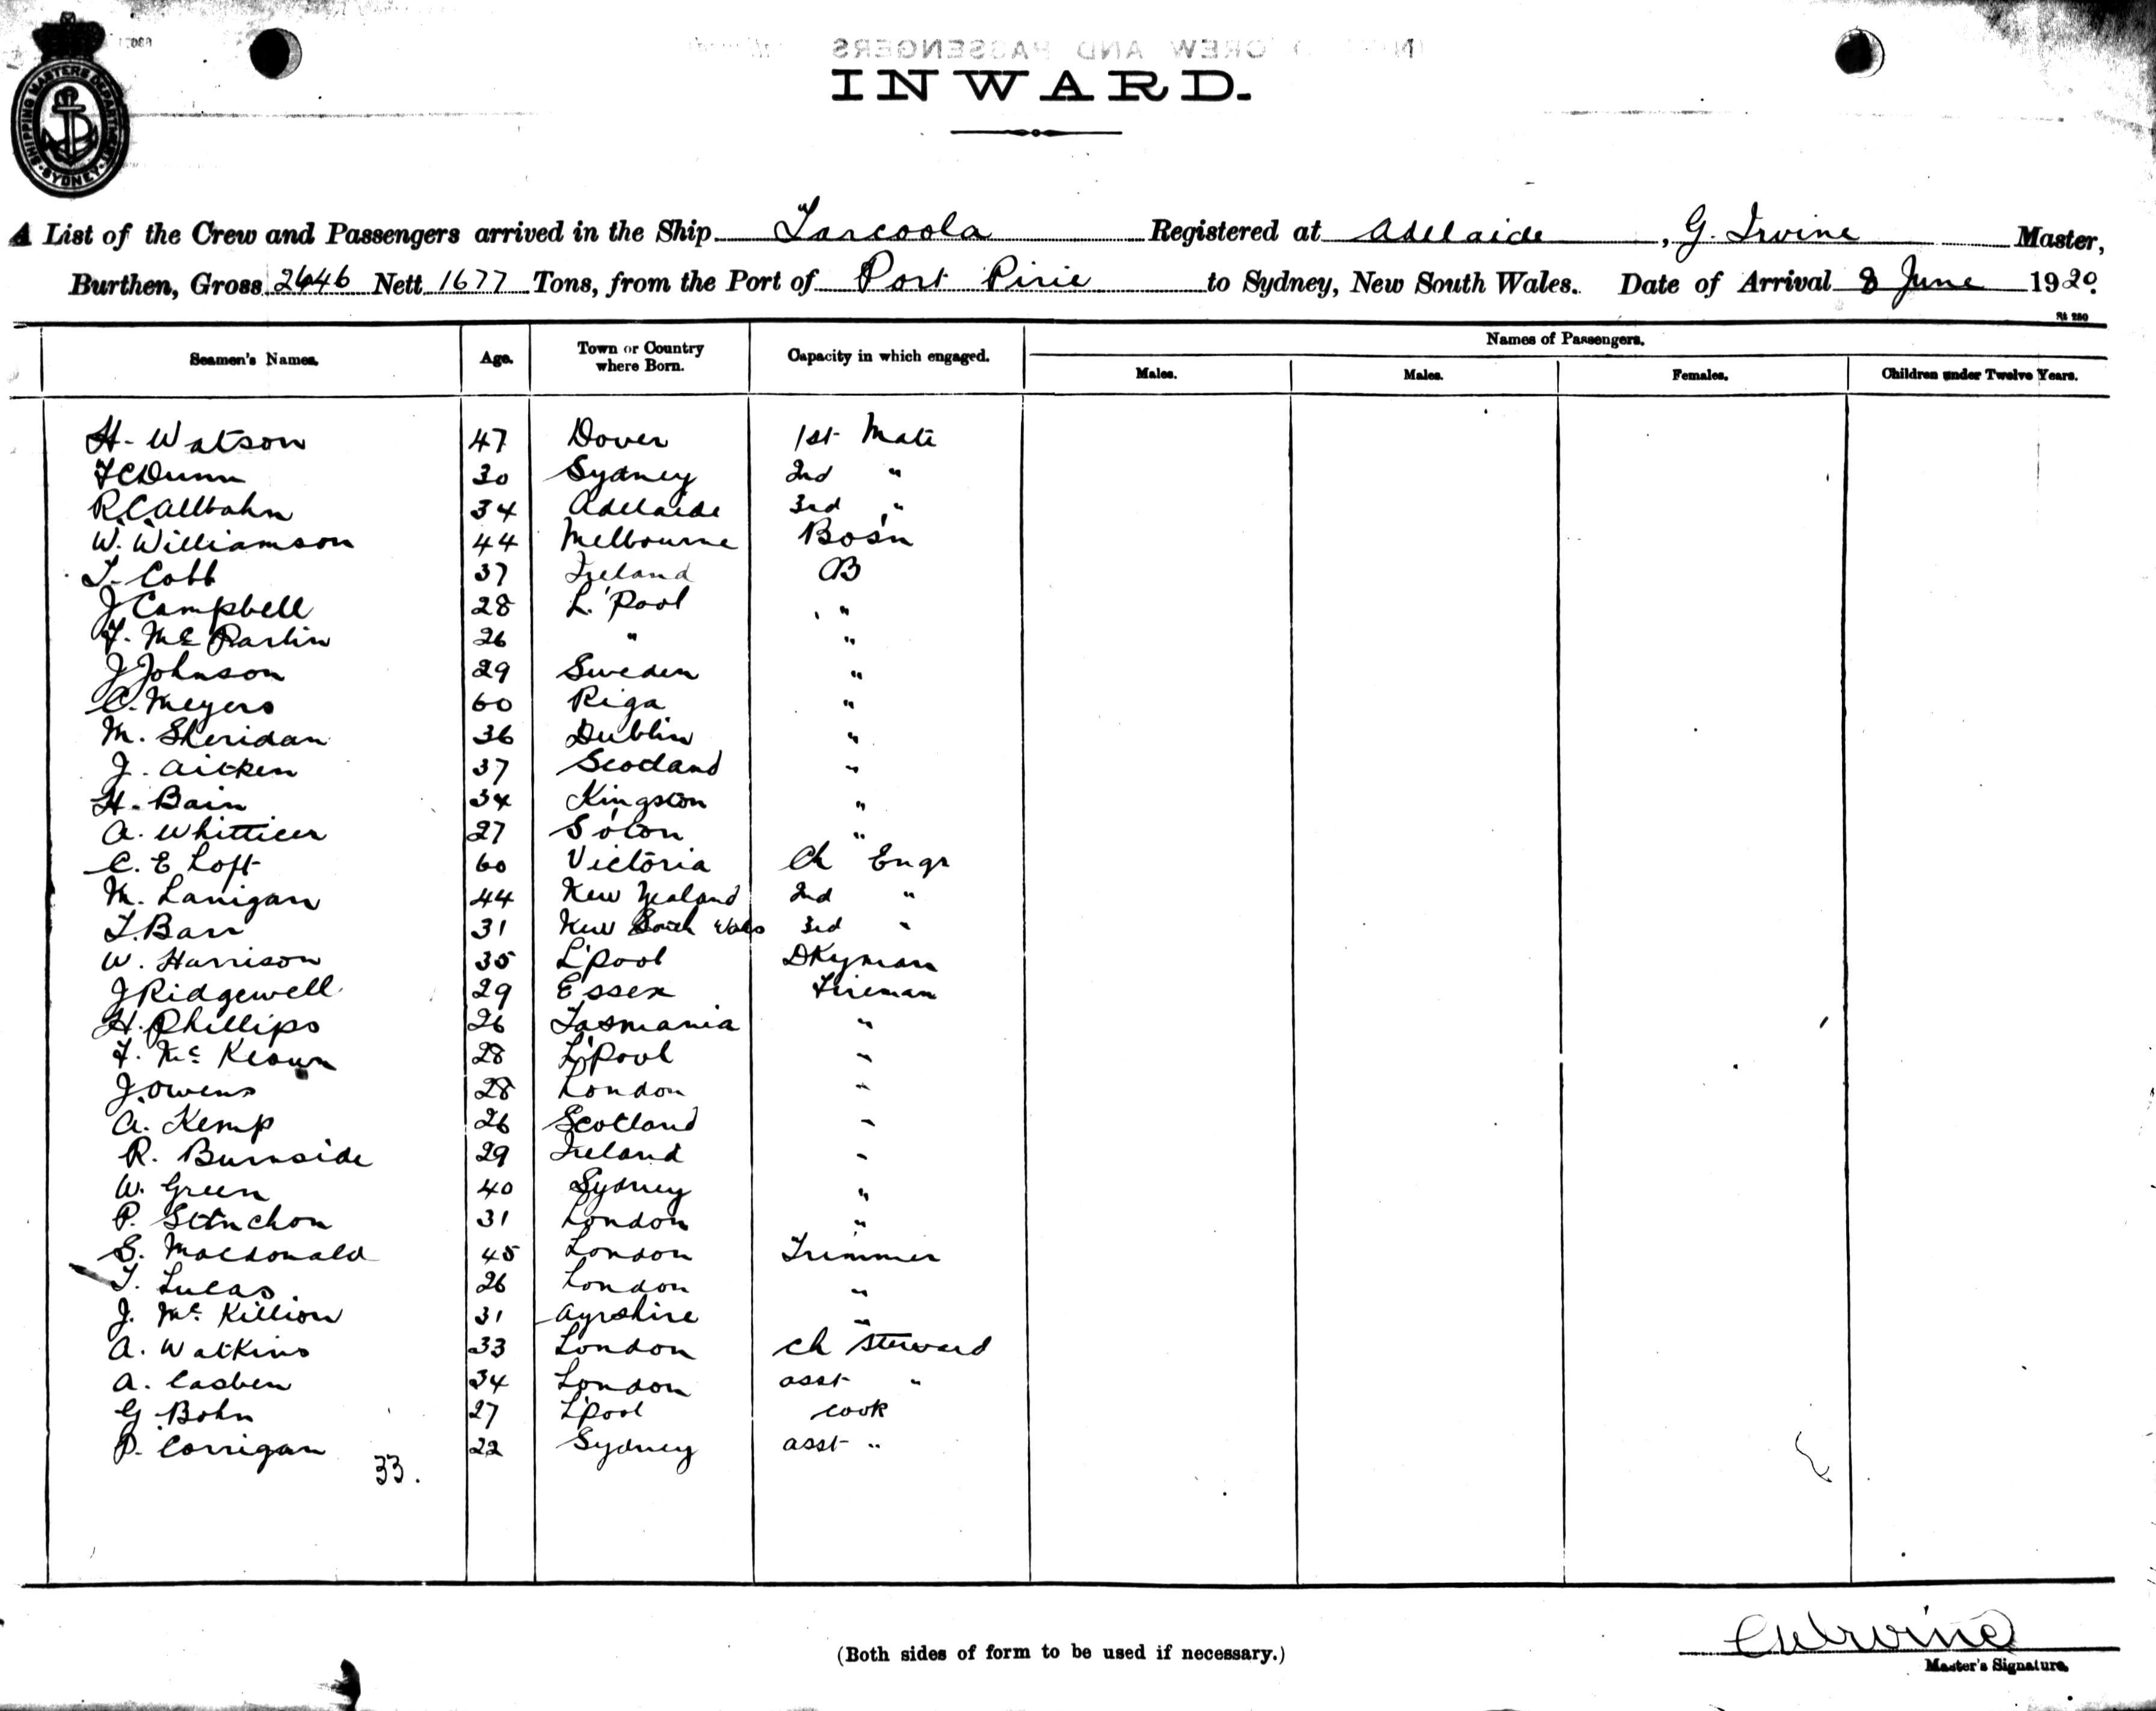 SHIPPING MASTERS DEPARTMENT
SYDNEY
INWARD.
A List of the Crew and Passengers arrived in the Ship Tarcoola Registered at Adelaide, G. Irvine Master,
Burthen, Gross 2646 Nett 1677 Tons, from the Port of Port Pirie to Sydney, New South Wales. Date of Arrival 8 June 1920.
Seamen's Names. Age. Town or Country where Born. Capacity in which engaged. Names of Passengers.
Males. Males. Females. Children under Twelve Years.
H. Watson 47 Dover 1st Mate
F C Dunn 30 Sydney 2nd "
R. C. Allbahn 34 Adelaide 3rd "
W. Williamson 44 Melbourne Bosn
T. Cobb 37 Ireland AB
J Campbell 28 L'Pool "
F. Mc Parlin 26 " "
J Johnson 29 Sweden "
C. Meyers 60 Riga "
M. Sheridan 36 Dublin "
J. Aitken 37 Scotland "
H. Bain 34 Kingston "
A. Whitticer 27 S'oton "
C. E Loft 60 Victoria Ch Engr
M. Lanigan 44 New Zealand 2nd "
T. Barr 31 New South Wales 3rd "
W. Harrison 35 L'pool DKyman
J Ridgewell 29 Essex Fireman
H. Phillips 26 Tasmania "
F. Mc Keown 28 L'Pool "
J. Owens 28 London "
A. Kemp 26 Scotland "
R. Burnside 29 Ireland "
W. Green 40 Sydney "
P. 31 London "
S. Macdonald 45 London Trimmer
T. Lucas 26 London "
J. Mc Killion 31 Ayrshire "
A. Watkins 33 London Ch Steward
A. Casben 34 London asst "
G. Bohn 27 L'pool cook
P. Corrigan 22 Sydney asst "
33.
(Both sides of form to be used if necessary.)
Master's Signature.